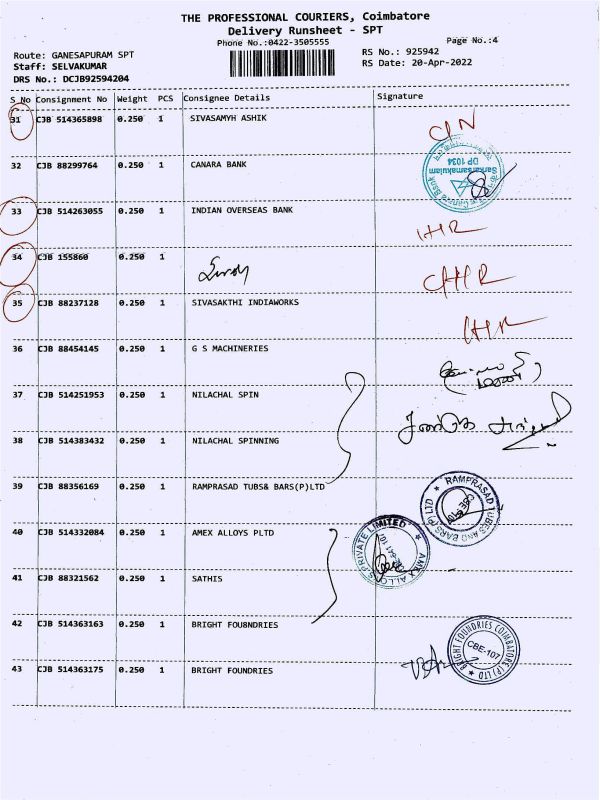 THE PROFESSIONAL COURIERS, Coimbatore
Delivery Runsheet - SPT
Phone No.:0422-3505555
Page No.:4
Route: GANESAPURAM SPT
RS No.: 925942
Staff: SELVAKUMAR
RS Date: 20-Apr-2022
DRS No.: DCJB92594204
S No Consignment No Weight PCS Consignee Details Signature
31 CJB 514365898 0.250 1 SIVASAMYH ASHIK
32 CJB 88299764 0.250 1 CANARA BANK
Sarkarsamakulam
DP 1034
33 CJB 514263055 0.250 1 INDIAN OVERSEAS BANK
34 CJB 155860 0.250 1
35 CJB 88237128 0.250 1 SIVASAKTHI INDIAWORKS
36 CJB 88454145 0.250 1 G S MACHINERIES
37 CJB 514251953 0.250 1 NILACHAL SPIN
38 CJB 514383432 0.250 1 NILACHAL SPINNING
39 CJB 88356169 0.250 1 RAMPRASAD TUBS& BARS(P)LTD
RAMPRASAD TUBES AND BARS (P) LTD
40 CJB 514332084 0.250 1 AMEX ALLOYS PLTD
AMEX ALLOYS PRIVATE LIMITED
41 CJB 88321562 0.250 1 SATHIS
42 CJB 514363163 0.250 1 BRIGHT FOU8NDRIES
BRIGHT FOUNDRIES COIMBATORE (P) LTD
CBE-107
43 CJB 514363175 0.250 1 BRIGHT FOUNDRIES